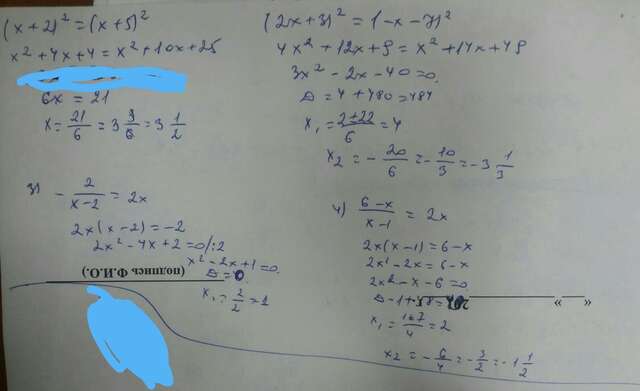 (x+2)² = (x+5)²
x² + 4x + 4 = x² + 10x + 25
6x = 21
x = 21/6 = 3 3/6 = 3 1/2
(2x+3)² = (-x-7)²
4x² + 12x + 9 = x² + 14x + 49
3x² - 2x - 40 = 0
D = 4 + 480 = 484
x₁ = (2+22)/6 = 4
x₂ = -20/6 = -10/3 = -3 1/3
3) -2/(x-2) = 2x
2x(x-2) = -2
2x² - 4x + 2 = 0 /:2
x² - 2x + 1 = 0
D = 0
x₁ = 2/2 = 1
(подпись Ф.И.О.)
4) (6-x)/(x-1) = 2x
2x(x-1) = 6-x
2x² - 2x = 6-x
2x² - x - 6 = 0
x₁ = (1+7)/4 = 2
x₂ = -6/4 = -3/2 = -1 1/2
« »